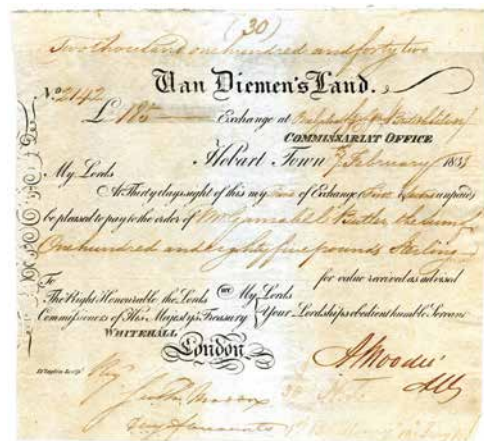 (30)
Two thousand one hundred and forty two
Van Diemen's Land.
No. 2142
£ 185 Exchange at
COMMISSARIAT OFFICE
Hobart Town 7 February 183
My Lords
At Thirty days sight of this my of Exchange unpaid
be pleased to pay to the order of Mr Gamaliel Butler the sum of
One hundred and eighty five pounds Sterling
for value received as advised
To
The Right Honourable the Lords or My Lords
Commissioners of His Majesty's Treasury Your Lordships obedient humble Servant
WHITEHALL
London
A Moodie